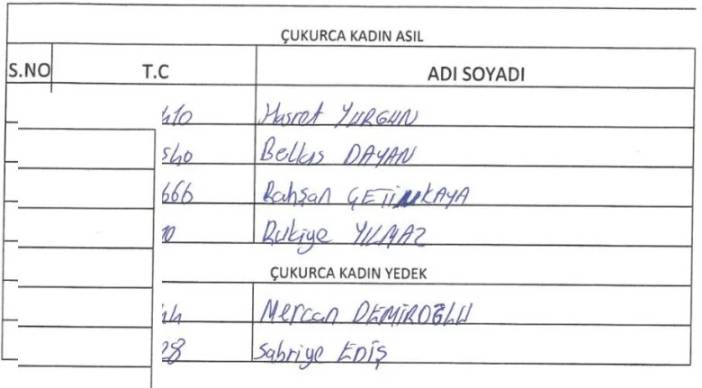 ÇUKURCA KADIN ASIL
S.NO T.C ADI SOYADI
410 Hasret YURGUN
540 Belkıs DAYAN
666 Rahşan ÇETİNKAYA
10 Rukiye YILMAZ
ÇUKURCA KADIN YEDEK
44 Mercan DEMİROĞLU
28 Sabriye EDİŞ